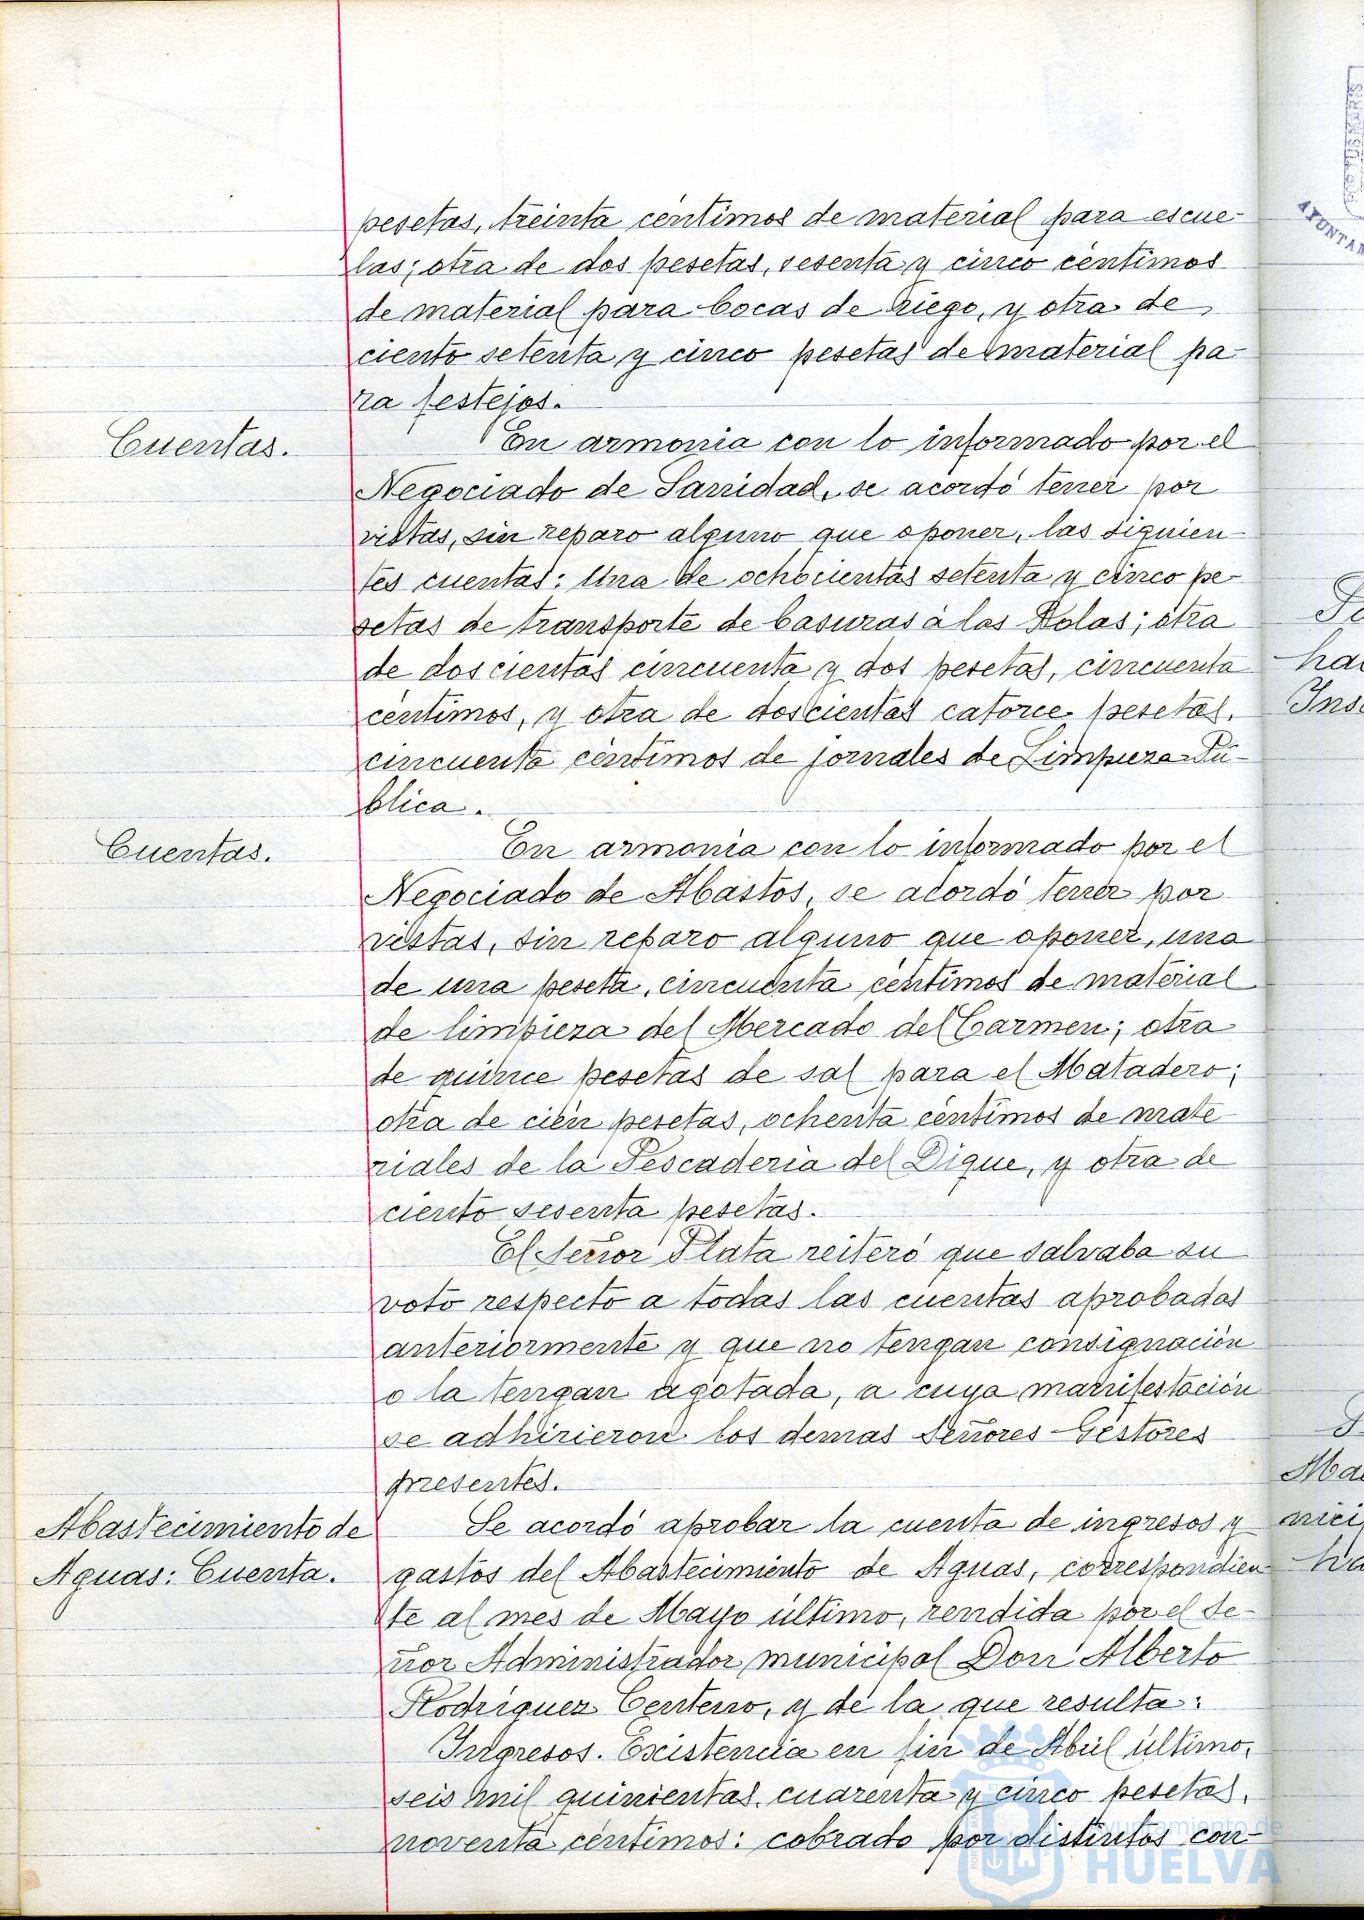 pesetas, treinta céntimos de material para escue-
las; otra de dos pesetas, sesenta y cinco céntimos
de material para bocas de riego, y otra de
ciento setenta y cinco pesetas de material pa-
ra festejos.
Cuentas.
En armonia con lo informado por el
Negociado de Sanidad, se acordó tener por
vistas, sin reparo alguno que oponer, las siguien-
tes cuentas: Una de ochocientas setenta y cinco pe-
setas de transporte de basuras á las Rolas; otra
de doscientas cincuenta y dos pesetas, cincuenta
céntimos, y otra de doscientas catorce pesetas,
cincuenta céntimos de jornales de Limpieza Pú-
blica.
Cuentas.
En armonia con lo informado por el
Negociado de Abastos, se acordó tener por
vistas, sin reparo alguno que oponer, una
de una peseta, cincuenta céntimos de material
de limpieza del Mercado del Carmen; otra
de quince pesetas de sal para el Matadero;
otra de cien pesetas, ochenta céntimos de mate-
riales de la Pescaderia del Dique, y otra de
ciento sesenta pesetas.
El Señor Plata reiteró que salvaba su
voto respecto a todas las cuentas aprobadas
anteriormente y que no tengan consignación
o la tengan agotada, a cuya manifestación
se adhirieron los demas Señores Gestores
presentes.
Abastecimiento de
Aguas: Cuenta.
Se acordó aprobar la cuenta de ingresos y
gastos del Abastecimiento de Aguas, correspondien-
te al mes de Mayo último, rendida por el Se-
ñor Administrador municipal Don Alberto
Rodríguez Centeno, y de la que resulta:
Ingresos. Existencia en fin de Abril último,
seis mil quinientas cuarenta y cinco pesetas,
noventa céntimos: cobrado por distintos con-
Ayuntamiento de
HUELVA